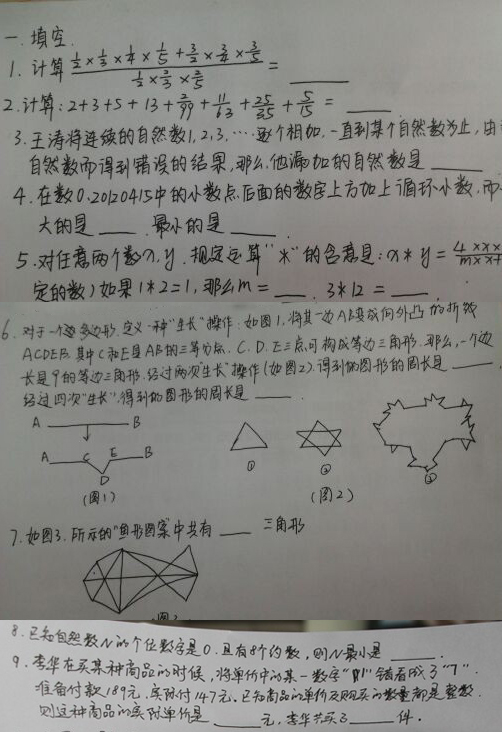 一、填空
1. 计算 (1/2×1/3×1/4×1/5+3/2×3/4×3/5)/(1/2×2/3×2/5) = ____
2. 计算: 2+3+5+13+2/99+11/63+25/35+5/15 = ____
3. 王涛将连续的自然数1,2,3,…逐个相加,一直到某个自然数为止,由
自然数而得到错误的结果,那么,他漏加的自然数是 ____
4. 在数0.20120415中的小数点后面的数字上方加上循环小数,
大的是 ____ 最小的是 ____
5. 对任意两个数x,y,规定运算"*"的含意是: x*y = 4×x×
定的数)如果1*2=1,那么m = ____ , 3*12 = ____
6. 对于一个多边形,定义一种"生长"操作:如图1,将其一边AB变成向外凸的折线
ACDEB,其中C和E是AB的三等分点,C,D,E三点可构成等边三角形,那么,一个边
长是9的等边三角形,经过两次"生长"操作(如图2),得到的图形的周长是 ____
经过四次"生长",得到的图形的周长是 ____
A B
A C E B
D
① ② ③
(图1) (图2)
7. 如图3,所示的"鱼形图案"中共有 ____ 三角形
8. 已知自然数N的个位数字是0,且有8个约数,则N最小是 ____
9. 李华在买某种商品的时候,将单价中的某一数字"1"错看成了"7",
准备付款189元,实际付147元,已知商品的单价及购买的数量都是整数,
则这种商品的实际单价是 ____ 元,李华共买了 ____ 件.